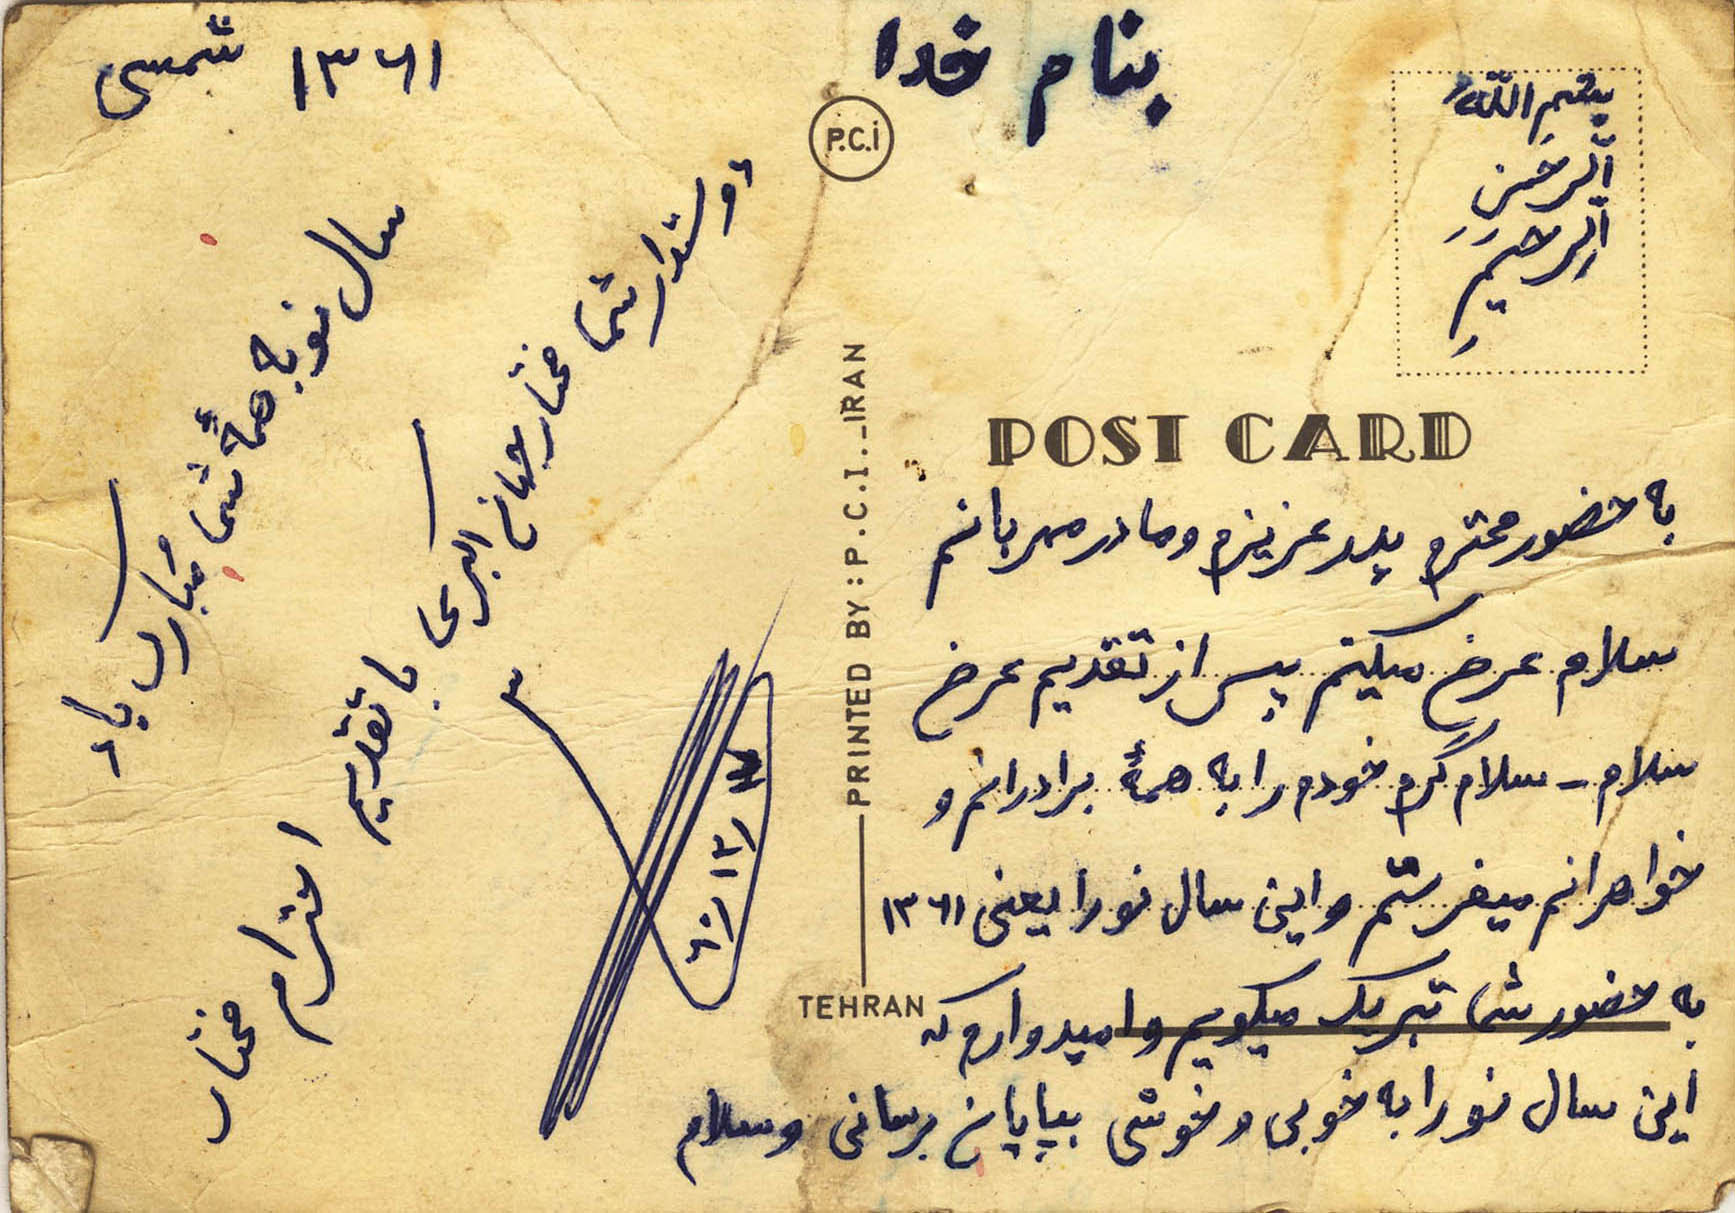 بنام خدا
۱۳۶۱ شمسی
بسم اللّه
الرحمن
الرحیم
P.C.i
POST CARD
به حضور محترم پدر عزیزم و مادر مهربانم
سلام عرض میکنم پس از تقدیم عرض
سلام - سلام گرم خودم را به همهٔ برادرانم و
خواهرانم میفرستم و این سال نو را یعنی ۱۳۶۱
به حضور شما تبریک میگویم و امیدوارم که
این سال نو را به خوبی و خوشی بپایان برسانی وسلام
PRINTED BY : P.C.I._IRAN
TEHRAN
دوستدار شما مختار جهان اکبری با تقدیم
احترام مختار
سال نو به همهٔ شما مُبارک باد
۶۰/۱۲/